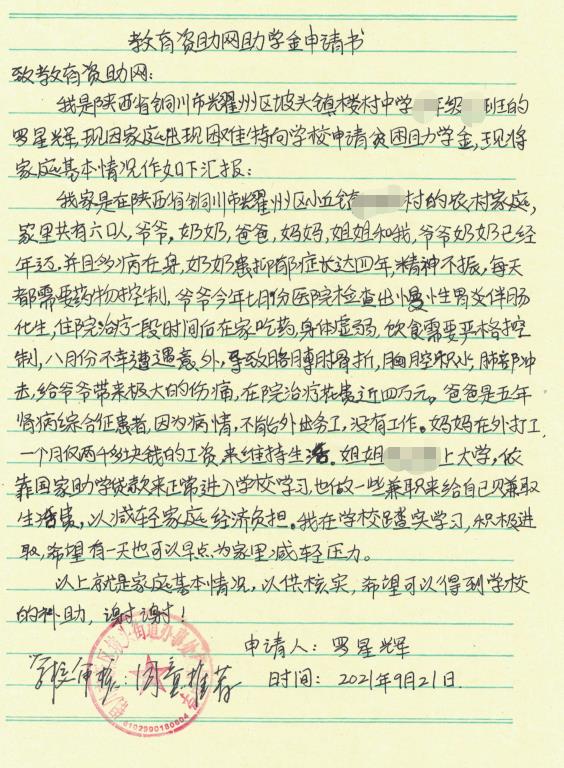 教育资助网助学金申请书
致教育资助网：
我是陕西省铜川市耀州区坡头镇楼村中学 年级 班的
罗星辉，现因家庭出现困难特向学校申请贫困助学金，现将
家庭基本情况作如下汇报：
我家是在陕西省铜川市耀州区小丘镇 村的农村家庭，
家里共有六口人，爷爷，奶奶，爸爸，妈妈，姐姐和我，爷爷奶奶已经
年迈，并且多病在身，奶奶患抑郁症长达四年，精神不振，每天
都需要药物控制，爷爷今年七月份医院检查出慢性胃炎伴肠
化生，住院治疗一段时间后在家吃药，身体虚弱，饮食需要严格控
制，八月份不幸遭遇意外，导致胳膊肘骨折，胸腔积水，肺部冲
击，给爷爷带来极大的伤痛，在院治疗花费近四万元。爸爸是五年
肾病综合征患者，因为病情，不能外出务工，没有工作。妈妈在外打工，
一个月仅两千多块钱的工资，来维持生活。姐姐 上大学，依
靠国家助学贷款来正常进入学校学习，也做一些兼职来给自己赚取
生活费，以减轻家庭经济负担。我在学校踏实学习，积极进
取，希望有一天也可以早点为家里减轻压力。
以上就是家庭基本情况，以供核实，希望可以得到学校
的补助，谢谢！
申请人：罗星辉
学校审核：同意推荐 时间：2021年9月21日
6102990180604